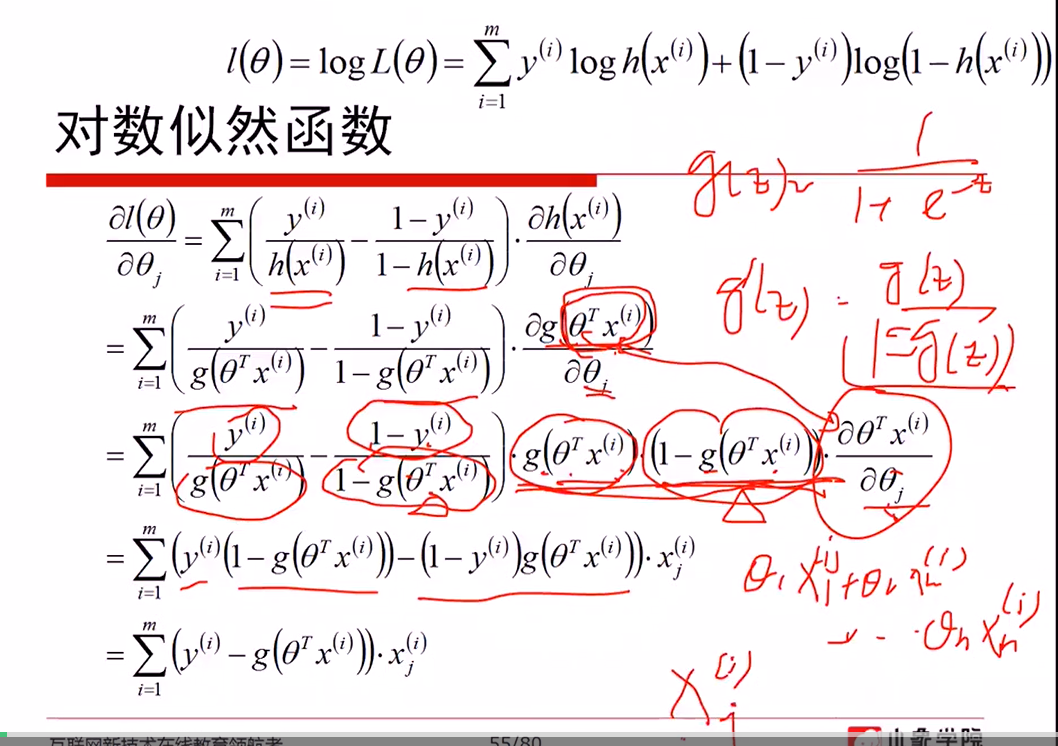 l(θ) = log L(θ) = ∑_{i=1}^{m} y^{(i)} log h(x^{(i)}) + (1 − y^{(i)}) log(1 − h(x^{(i)}))
对数似然函数
g(z) = 1 / (1 + e^{-z})
∂l(θ)/∂θ_j = ∑_{i=1}^{m} ( y^{(i)}/h(x^{(i)}) − (1 − y^{(i)})/(1 − h(x^{(i)})) ) · ∂h(x^{(i)})/∂θ_j
g'(z) = g(z) (1 − g(z))
= ∑_{i=1}^{m} ( y^{(i)}/g(θ^T x^{(i)}) − (1 − y^{(i)})/(1 − g(θ^T x^{(i)})) ) · ∂g(θ^T x^{(i)})/∂θ_j
= ∑_{i=1}^{m} ( y^{(i)}/g(θ^T x^{(i)}) − (1 − y^{(i)})/(1 − g(θ^T x^{(i)})) ) · g(θ^T x^{(i)}) · (1 − g(θ^T x^{(i)})) · ∂θ^T x^{(i)}/∂θ_j
= ∑_{i=1}^{m} (y^{(i)}(1 − g(θ^T x^{(i)})) − (1 − y^{(i)})g(θ^T x^{(i)})) · x_j^{(i)}
θ_1 x_1^{(i)} + θ_2 x_2^{(i)}
+ - · θ_n x_n^{(i)}
= ∑_{i=1}^{m} (y^{(i)} − g(θ^T x^{(i)})) · x_j^{(i)}
x_j^{(i)}
互联网新技术在线教育领航者
55/80
小象学院